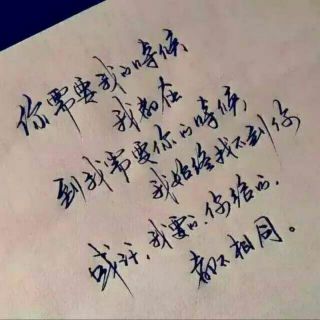 你需要我的時候
我都在
到我需要你的時候
我始终找不到你
或许,我要的,你给的,
都不相同。